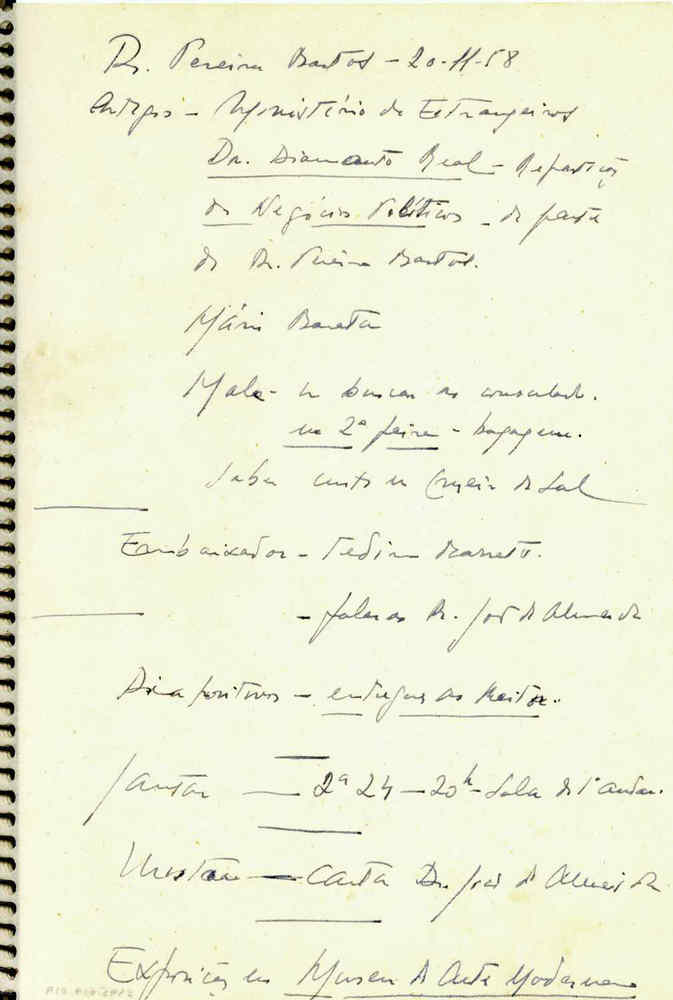 Dr. Pereira Bastos - 20-11-58
Artigos - Ministério de Estrangeiros
Dr. Diamanto Real - Repartição
dos Negócios Políticos - de parte
do Dr. Pereira Bastos.
Mário Barata
Mala - ir buscar ao consulado.
na 2ª feira - bagagem.
Saber Cruzeiro do Sul
Embaixador -
- falar ao Dr. José de Almeida
Diapositivos - entregar ao Reitor.
Jantar — 2ª 24 - 20h - Sala do 1º andar.
Mostrar — Carta Dr. José de Almeida
Exposição no Museu de Arte Moderna